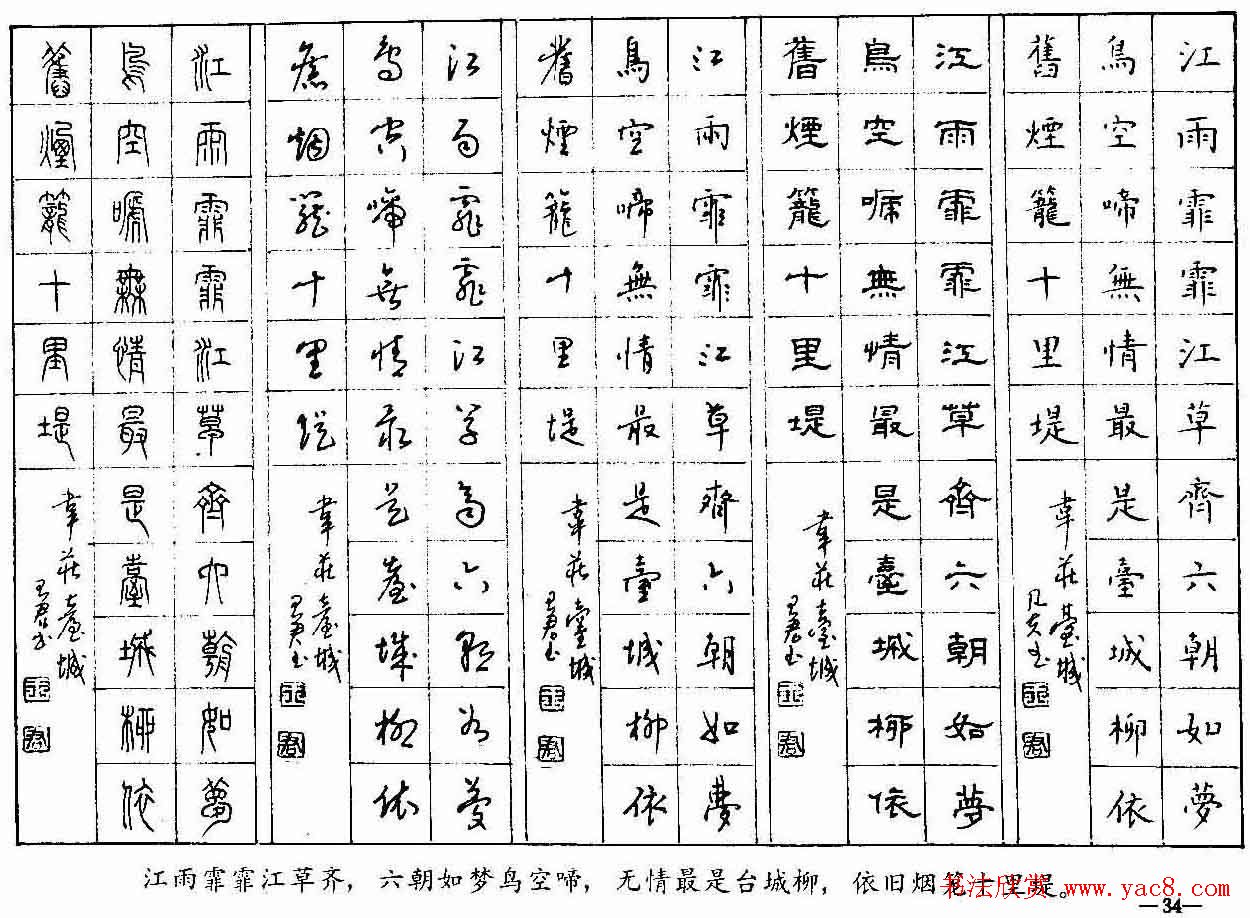 江雨霏霏江草齊六朝如夢
鳥空啼無情最是臺城柳依
舊煙籠十里堤
韋莊臺城
江雨霏霏江草齊六朝如夢
鳥空啼無情最是臺城柳依
舊煙籠十里堤
韋莊臺城
江雨霏霏江草齊六朝如夢
鳥空啼無情最是臺城柳依
舊煙籠十里堤
韋莊臺城
江雨霏霏江草齊六朝如夢
鳥空啼無情最是臺城柳依
舊烟籠十里堤
韋莊臺城
江雨霏霏江草齊六朝如夢
鳥空啼無情最是臺城柳依
舊煙籠十里堤
韋莊臺城
江雨霏霏江草齐，六朝如梦鸟空啼，无情最是台城柳，依旧烟笼十里堤。
书法欣赏 www.yac8.com
—34—